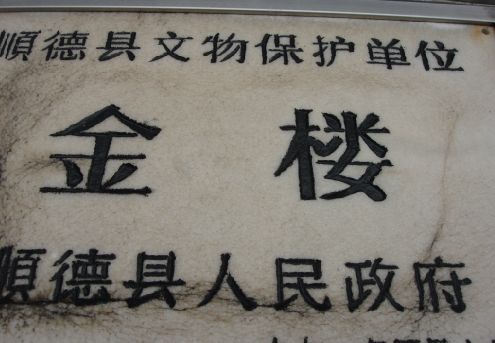 順德县文物保护单位
金楼
順德县人民政府